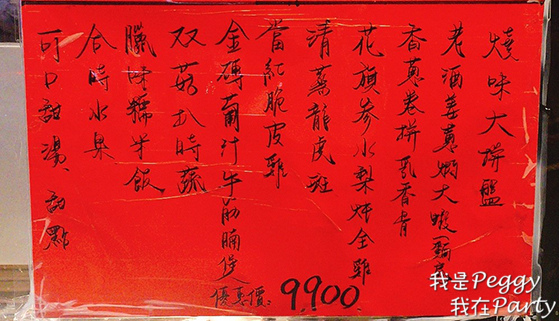 燒味大拼盤
老酒姜蔥焗大蝦
香蔥卷拼乳香骨
花旗參水梨炖全雞
清蒸龍虎斑
當紅脆皮雞
金磚汁牛筋腩煲
双菇扒時蔬
臘味糯米飯
合時水果
可口甜湯、甜點
優惠價: 9,900
我是Peggy
我在Party